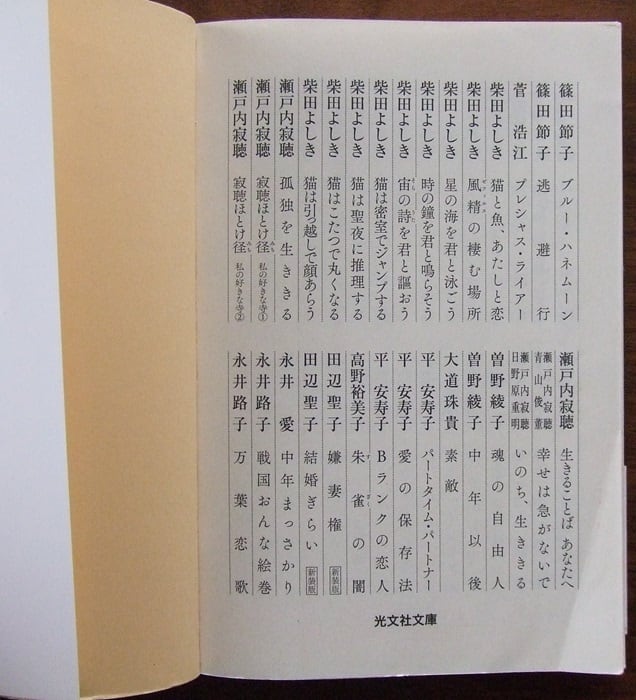 篠田節子 ブルー・ハネムーン
篠田節子 逃避行
菅浩江 プレシャス・ライアー
柴田よしき 猫と魚、あたしと恋
柴田よしき 風精の棲む場所
柴田よしき 星の海を君と泳ごう
柴田よしき 時の鐘を君と鳴らそう
柴田よしき 宙の詩を君と謳おう
柴田よしき 猫は密室でジャンプする
柴田よしき 猫は聖夜に推理する
柴田よしき 猫はこたつで丸くなる
柴田よしき 猫は引っ越しで顔あらう
瀬戸内寂聴 孤独を生ききる
瀬戸内寂聴 寂聴ほとけ径 私の好きな寺①
瀬戸内寂聴 寂聴ほとけ径 私の好きな寺②
瀬戸内寂聴 生きることば あなたへ
瀬戸内寂聴 青山俊董 幸せは急がないで
瀬戸内寂聴 日野原重明 いのち、生ききる
曽野綾子 魂の自由人
曽野綾子 中年以後
大道珠貴 素敵
平安寿子 パートタイム・パートナー
平安寿子 愛の保存法
平安寿子 Bランクの恋人
高野裕美子 朱雀の闇
田辺聖子 嫌妻権 新装版
田辺聖子 結婚ぎらい 新装版
永井愛 中年まっさかり
永井路子 戦国おんな絵巻
永井路子 万葉恋歌
光文社文庫